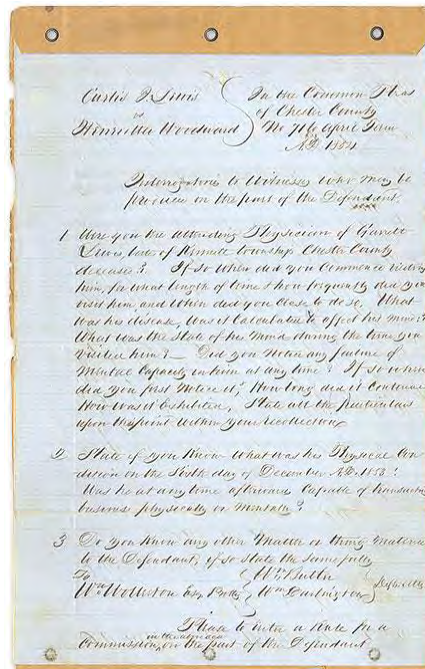 Curtis J Lewis } In the Common Pleas
vs of Chester County
Henrietta Woodward No 716 April Term
AD. 1854
Interrogatories to Witnesses who may be
produced on the part of the Defendant.
1 Were you the attending Physician of Garrett
Lewis, late of township Chester County
deceased? If so When did you Commence visiting
him, for what length of time & how frequently did you
visit him, and when did you Cease to do so. What
was his disease, Was it Calculated to affect his mind?
What was the State of his Mind during the time you
visited him? — Did you Notice any failure of
Mental Capacity in him at any time? If so when
did you first Notice it? How long did it Continue
How was it Exhibited, State all the particulars
upon this point within your recollection
2 State if you Know What was his Physical Con
dition on the Sixth day of December A.D. 1853?
Was he at any time afterwards Capable of transacting
business physically or Mentally?
3 Do you Know any other Matter or thing Material
to the Defendant, if so State the same fully
To Wm Butler
Wm Esq Wm Darlington
Please to enter a Rule for a
Commission, on the part of the Defendant